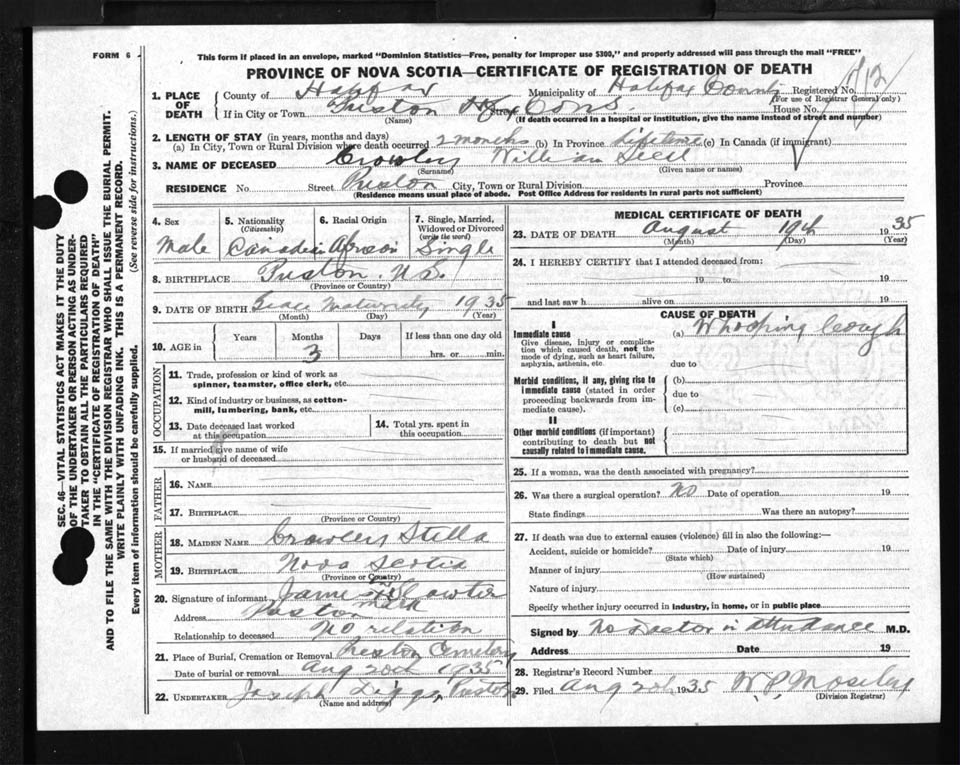 FORM 6
This form if placed in an envelope, marked "Dominion Statistics—Free, penalty for improper use $300," and properly addressed will pass through the mail "FREE"
PROVINCE OF NOVA SCOTIA—CERTIFICATE OF REGISTRATION OF DEATH
1. PLACE OF DEATH
County of Halifax Municipality of Halifax County Registered No.
(For use of Registrar General only)
If in City or Town Preston Street House No.
(Name) (If death occurred in a hospital or institution, give the name instead of street and number)
2. LENGTH OF STAY (in years, months and days)
(a) In City, Town or Rural Division where death occurred 2 months (b) In Province Lifetime (c) In Canada (if immigrant)
3. NAME OF DECEASED Crowley William Cecil
(Surname) (Given name or names)
RESIDENCE No. Street Preston City, Town or Rural Division Province
(Residence means usual place of abode. Post Office Address for residents in rural parts not sufficient)
4. Sex
Male
5. Nationality
(Citizenship)
Canadian
6. Racial Origin
African
7. Single, Married, Widowed or Divorced
(write the word)
Single
8. BIRTHPLACE Preston. N.S.
(Province or Country)
9. DATE OF BIRTH 1935
(Month) (Day) (Year)
10. AGE in Years Months Days If less than one day old
3 hrs. or min.
OCCUPATION
11. Trade, profession or kind of work as spinner, teamster, office clerk, etc.
12. Kind of industry or business, as cotton-mill, lumbering, bank, etc.
13. Date deceased last worked at this occupation
14. Total yrs. spent in this occupation
15. If married give name of wife or husband of deceased
FATHER
16. NAME
17. BIRTHPLACE
(Province or Country)
MOTHER
18. MAIDEN NAME Crowley Stella
19. BIRTHPLACE Nova Scotia
(Province or Country)
20. Signature of informant James X Slawter
mark
Address Preston
Relationship to deceased No relation
21. Place of Burial, Cremation or Removal Preston Cemetery
Date of burial or removal Aug 20th 1935
22. UNDERTAKER Joseph Diggs, Preston
(Name and address)
MEDICAL CERTIFICATE OF DEATH
23. DATE OF DEATH August 19th 1935
(Month) (Day) (Year)
24. I HEREBY CERTIFY that I attended deceased from:
19 to 19
and last saw h alive on 19
CAUSE OF DEATH
I
Immediate cause (a) Whooping Cough
Give disease, injury or complication which caused death, not the mode of dying, such as heart failure, asphyxia, asthenia, etc.
due to
Morbid conditions, if any, giving rise to immediate cause (stated in order proceeding backwards from immediate cause).
(b)
due to
(c)
II
Other morbid conditions (if important) contributing to death but not causally related to immediate cause.
25. If a woman, was the death associated with pregnancy?
26. Was there a surgical operation? No Date of operation 19
State findings Was there an autopsy?
27. If death was due to external causes (violence) fill in also the following:—
Accident, suicide or homicide? Date of injury 19
(State which)
Manner of injury
(How sustained)
Nature of injury
Specify whether injury occurred in industry, in home, or in public place
Signed by No Doctor in attendance M.D.
Address Date 19
28. Registrar's Record Number
29. Filed Aug 1935 W P Moseley
(Division Registrar)
SEC. 46—VITAL STATISTICS ACT MAKES IT THE DUTY
OF THE UNDERTAKER OR PERSON ACTING AS UNDER-
TAKER TO OBTAIN ALL THE PARTICULARS REQUIRED
IN THE "CERTIFICATE OF REGISTRATION OF DEATH"
AND TO FILE THE SAME WITH THE DIVISION REGISTRAR WHO SHALL ISSUE THE BURIAL PERMIT.
WRITE PLAINLY WITH UNFADING INK. THIS IS A PERMANENT RECORD.
Every item of information should be carefully supplied. (See reverse side for instructions.)